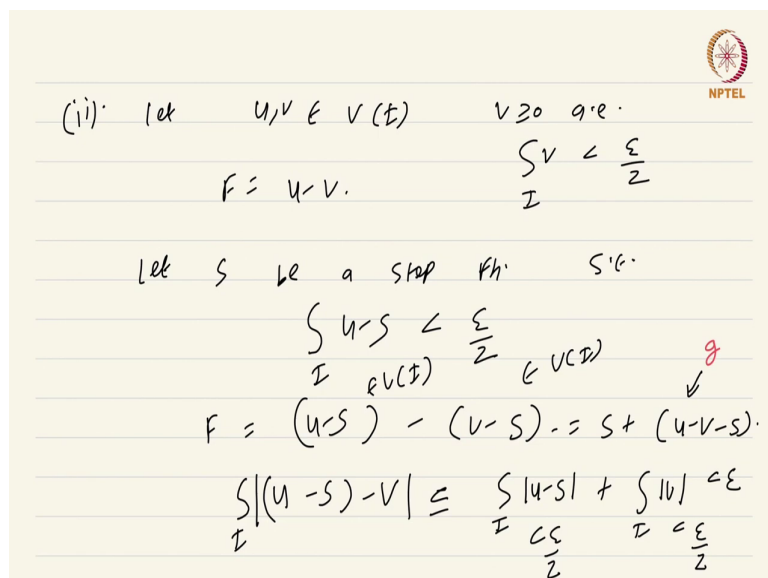 NPTEL
(ii). let u, v ∈ V(I) v ≥ 0 a.e.
∫_I v < ε/2
F = u - v.
Let S be a step Fn. s.t.
∫_I u - s < ε/2
g
∈ U(I) ∈ U(I)
F = (u - s) - (v - s). = s + (u - v - s).
∫_I |(u - s) - v| ≤ ∫_I |u - s| + ∫_I |v| < ε
< ε/2 < ε/2